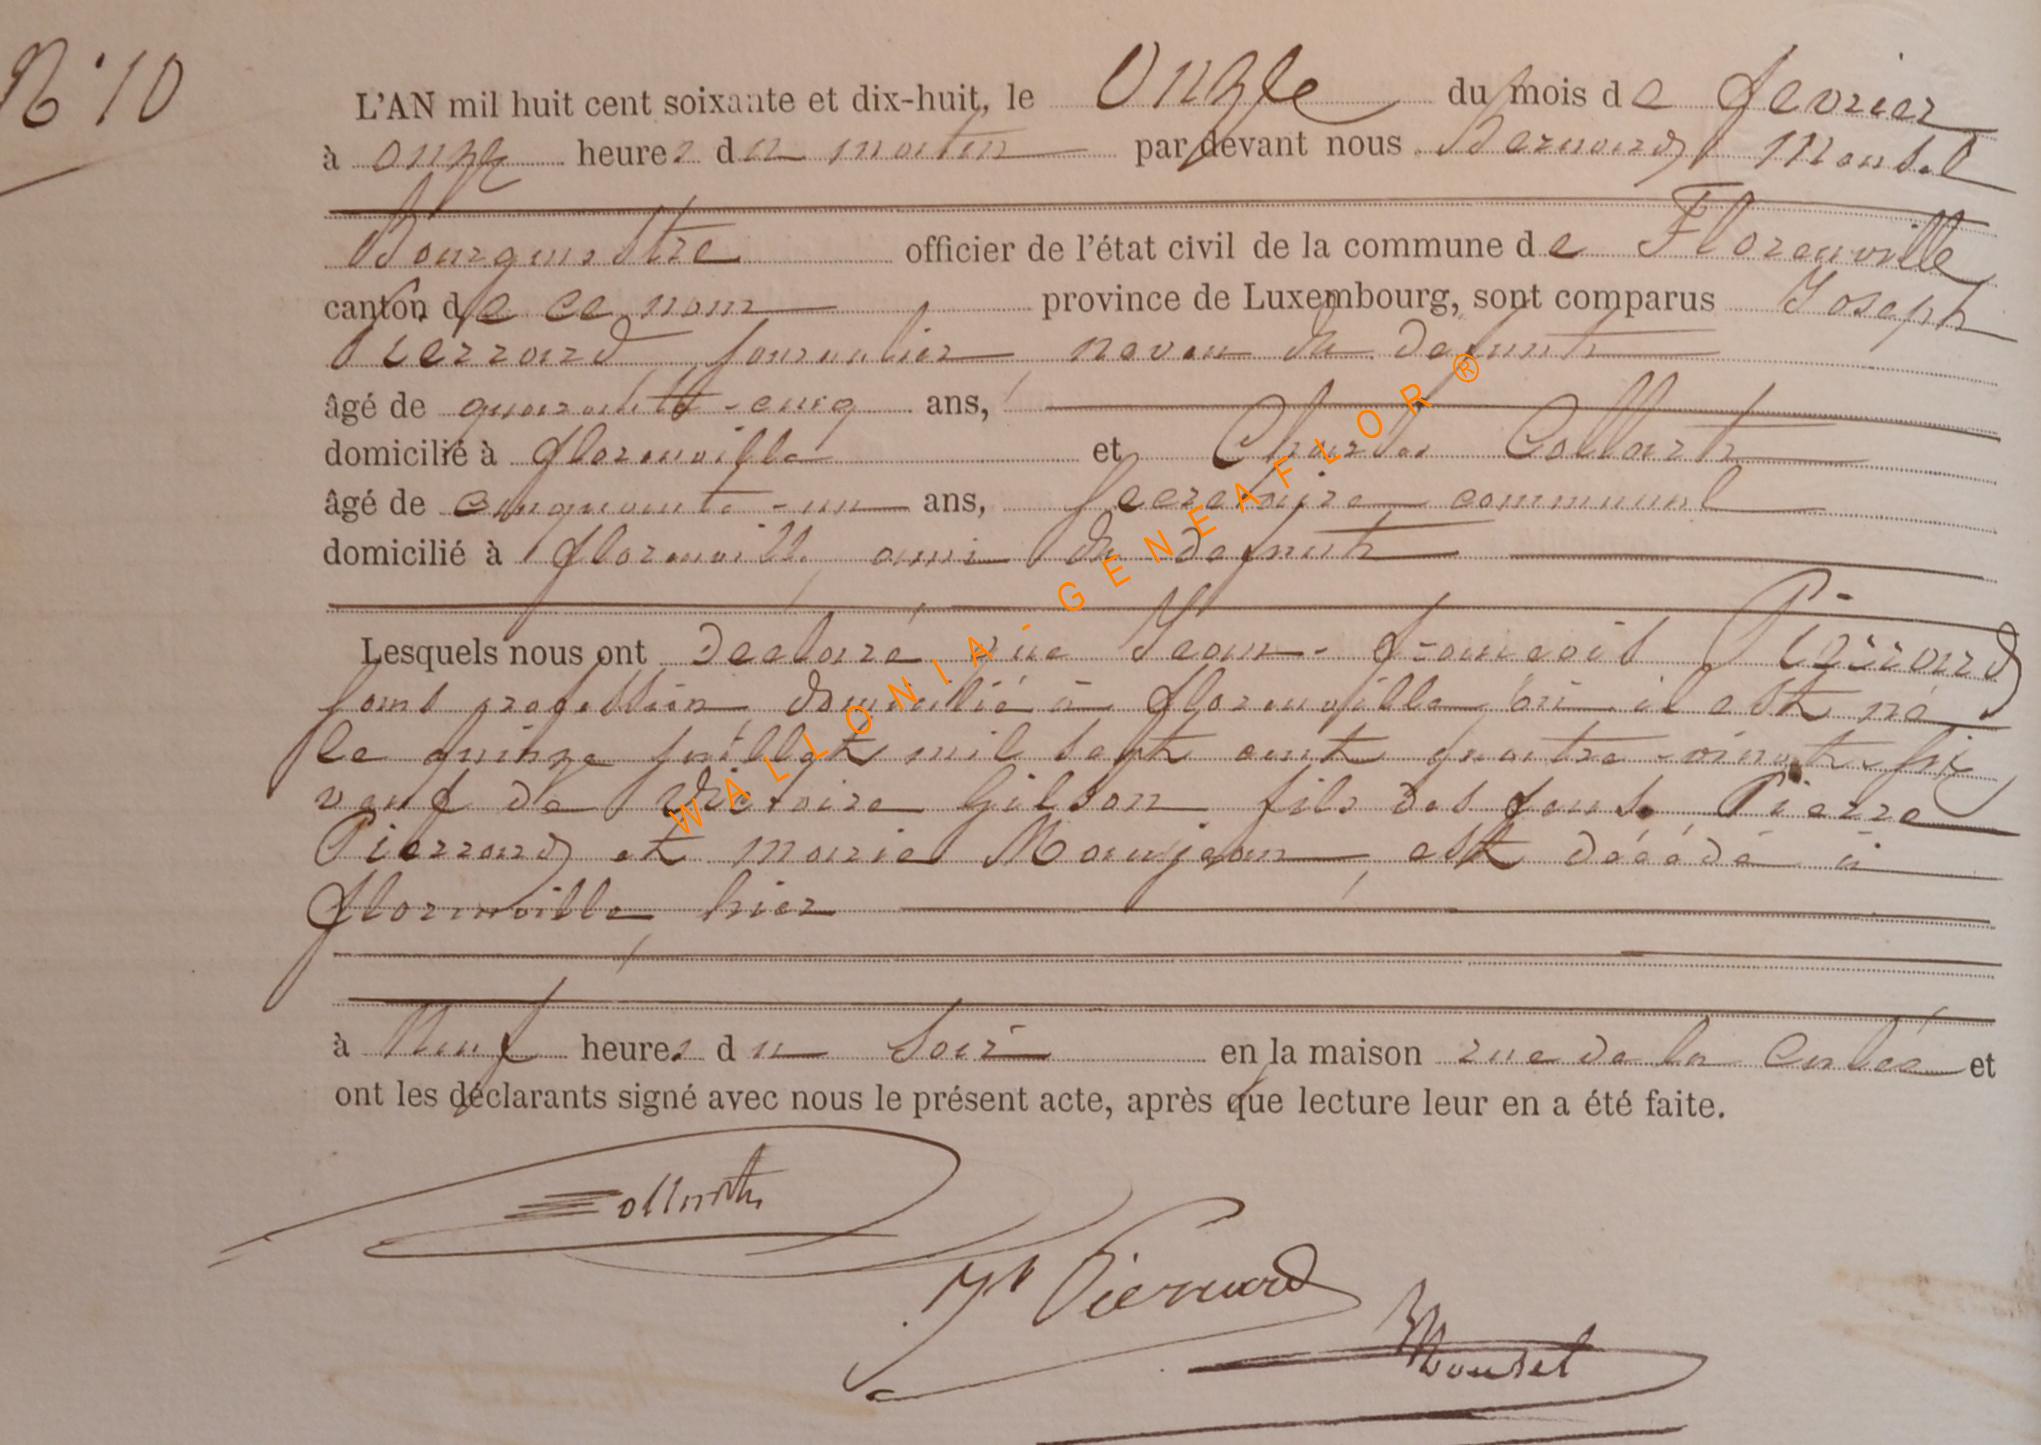 N° 10
L'AN mil huit cent soixante et dix-huit, le Onze du mois de fevrier
à onze heures du matin par devant nous Bernard Mousel
Bourgmestre officier de l'état civil de la commune de Florenville
canton de ce nom province de Luxembourg, sont comparus Joseph
Pierrard journalier neveu du defunt
âgé de quarante-cinq ans,
domicilié à florenville et Charles Collart
âgé de cinquante-un ans, secretaire communal
domicilié à florenville, ami du defunt
Lesquels nous ont declaré que Jean-francois Pierrard
sans profession domicilié à florenville, où il est né
le quinze juillet mil sept cent quatre-vingt-six
veuf de Victoire Gilson fils des feus Pierre
Pierrard et marie Maujean, est décédé à
florenville, hier
à Neuf heures du soir en la maison rue de la Culée et
ont les déclarants signé avec nous le présent acte, après que lecture leur en a été faite.
Collart
Jh Pierrard
Mousel
WALLONIA-GENEAFLOR ®